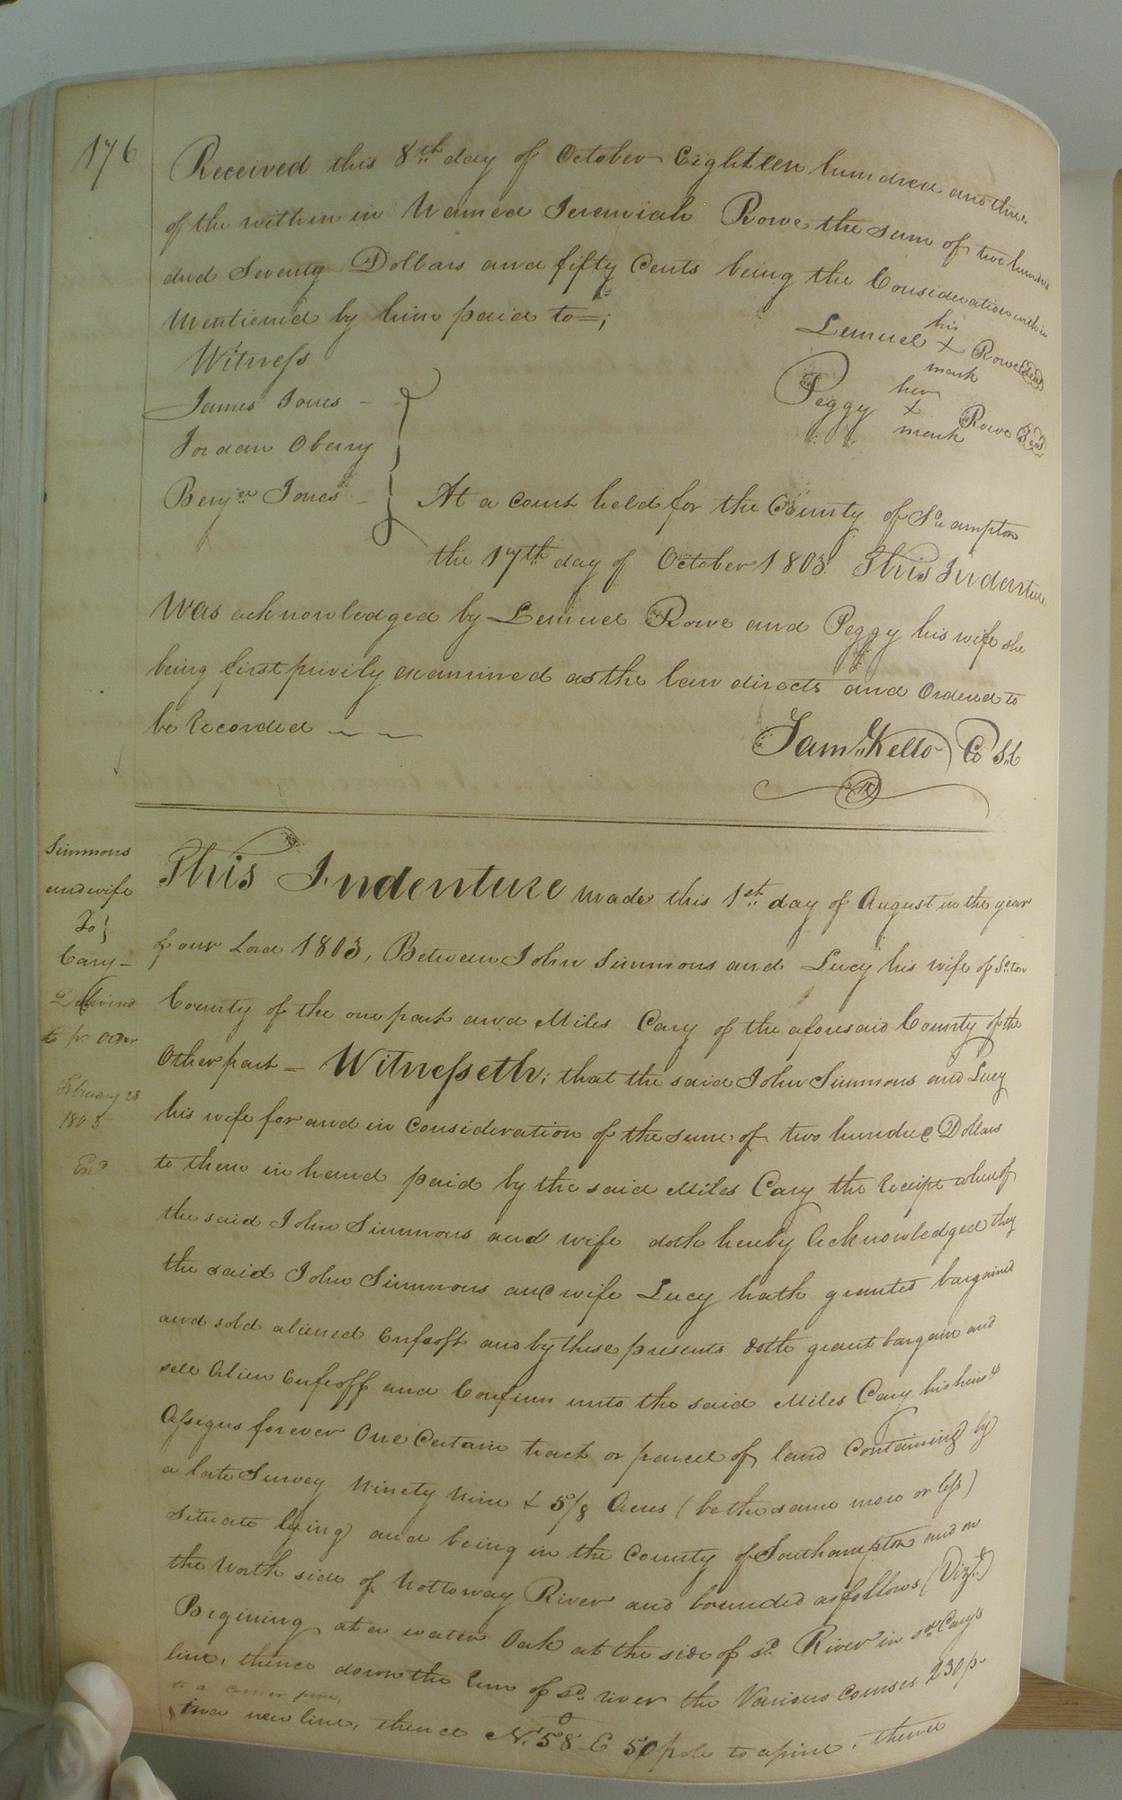 176
Received this 8th day of October Eighteen hundred and three
of the within in Named Jeremiah Rowe the sum of two hundred
and Seventy Dollars and fifty Cents being the Consideration within
Mentioned by him paid to =;
Witness
Lemuel his X mark Rowe (Seal)
Peggy her X mark Rowe (Seal)
James Jones -
Jordan Oberry
Benjn Jones -
At a court held for the County of So ampton
the 17th day of October 1803 This Indenture
Was acknowledged by Lemuel Rowe and Peggy his wife she
being first privily examined as the law directs and Ordered to
be Recorded
Saml Kello C S C
Simmons
and wife
To }
Cary -
Delivered
to pr order
February 28
1805
Exd
This Indenture made this 1st day of August in the year
of our Lord 1803, Between John Simmons and Lucy his wife of So ton
County of the one part and Miles Cary of the aforesaid County of the
Other part - Witnesseth; that the said John Simmons and Lucy
his wife for and in consideration of the sum of two hundred Dollars
to them in hand paid by the said Miles Cary the Receipt whereof
the said John Simmons and wife doth hereby Acknowledged they
the said John Simmons and wife Lucy hath granted bargained
and sold aliened Enfeoft and by these presents doth grant bargain and
sell Alien Enfeoff and Confirm unto the said Miles Cary his heirs &
Assigns forever One Certain tract or parcel of land Containing by
a late Survey Ninety Nine & 5/8 Acres (be the same more or less)
Situate lying and being in the County of Southampton and on
the North side of Nottoway River and bounded as follows (Vizt)
Begining at a water Oak at the side of sd River in sd Cary's
line, thence down the line of sd river the Various Courses 230 p.
to a corner pine,
in a new line, thence N. 58° E 50 pole to a pine, thence